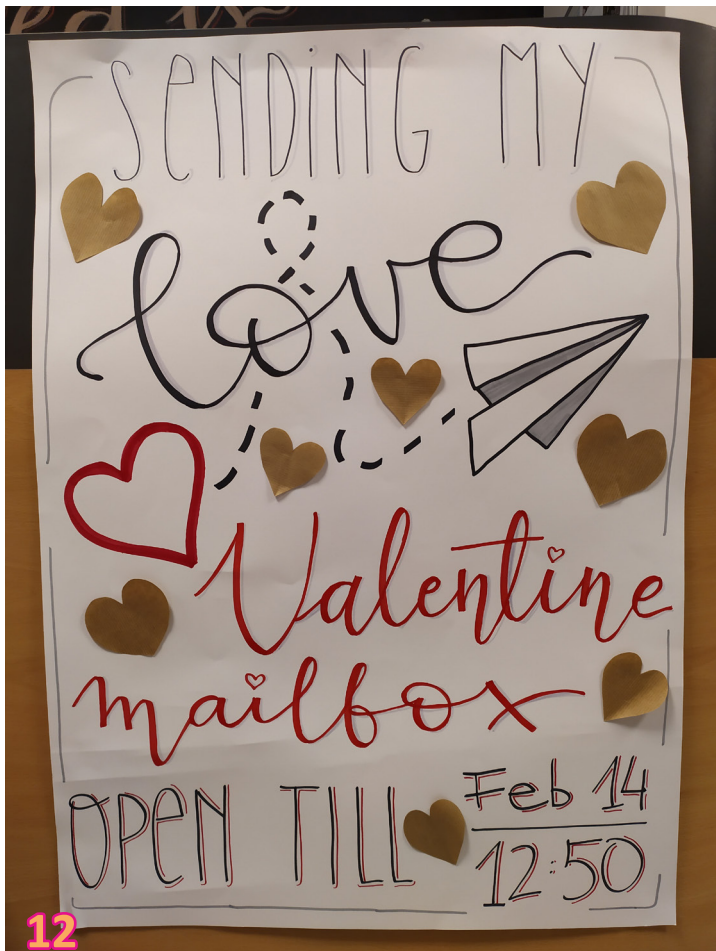 SENDiNG MY
love
Valentine
mailbox
OPeN TILL
Feb 14
12:50
12